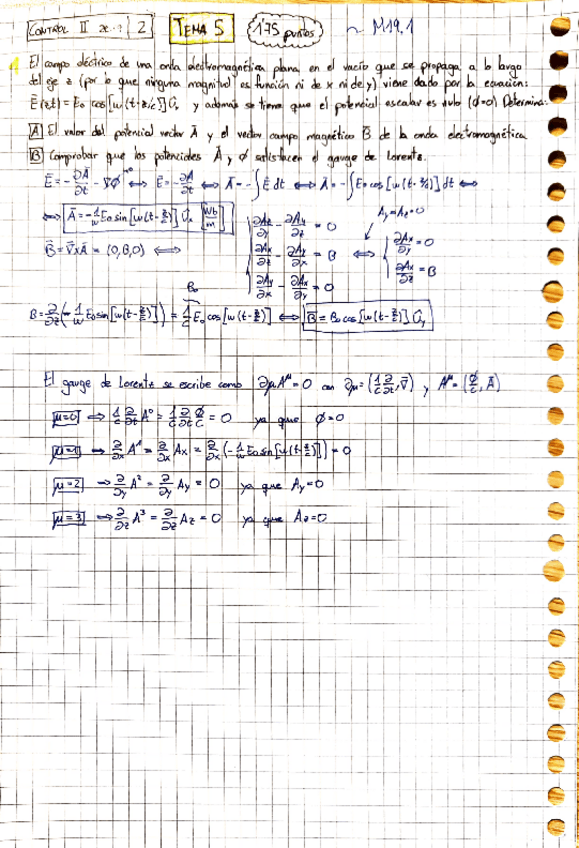 CONTROL II 2 TEMA 5 1'75 puntos ~ M19.1
El campo eléctrico de una onda electromagnética plana, en el vacío que se propaga a lo largo
del eje z (por lo que ninguna magnitud es función ni de x ni de y) viene dado por la ecuación:
Ē(z,t) = E₀ cos[w(t-z/c)] Ûₓ y además se tiene que el potencial escalar es nulo (ϕ=0) Determina:
A El valor del potencial vector Ā y el vector campo magnético B̄ de la onda electromagnética
B Comprobar que los potenciales Ā y ϕ satisfacen el gauge de Lorentz.
Ē = -∂Ā/∂t - ∇̄ϕ ⟺ Ē = -∂Ā/∂t ⟺ Ā = -∫Ē dt ⟺ Ā = -∫E₀ cos[w(t-z/c)] dt ⟺
⟺ Ā = -1/w E₀ sin[w(t-z/c)] Ûₓ [Wb/m]
∂Az/∂y - ∂Ay/∂z = 0 Ay=Az=0
B̄ = ∇̄xĀ = (0,B,0) ⟺ ∂Ax/∂z - ∂Az/∂x = B ⟺ ∂Ax/∂y = 0
∂Ay/∂x - ∂Ax/∂y = 0 ∂Ax/∂z = B
B₀
B = ∂/∂z(-1/w E₀ sin[w(t-z/c)]) = 1/c E₀ cos[w(t-z/c)] ⟺ B̄ = B₀ cos[w(t-z/c)] Ûy
El gauge de Lorentz se escribe como ∂μA^μ = 0 con ∂μ = (1/c ∂/∂t, ∇̄) y A^μ = (ϕ/c, Ā)
μ=0 ⟹ 1/c ∂/∂t A⁰ = 1/c ∂/∂t ϕ/c = 0 ya que ϕ=0
μ=1 ⟹ ∂/∂x A¹ = ∂/∂x Ax = ∂/∂x(-1/w E₀ sin[w(t-z/c)]) = 0
μ=2 ⟹ ∂/∂y A² = ∂/∂y Ay = 0 ya que Ay=0
μ=3 ⟹ ∂/∂z A³ = ∂/∂z Az = 0 ya que Az=0